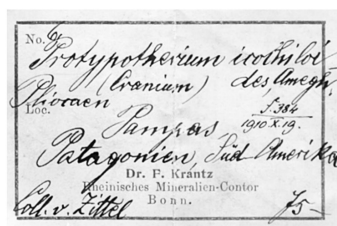 No. 6
Protypotherium icochiloi
(Cranium) des Amegh.
Pliocaen
Loc.
Pampas
1910 X. 19.
Patagonien, Süd Amerika
Dr. F. Krantz
Rheinisches Mineralien-Contor
Bonn.
Coll. v. Zittel 75-